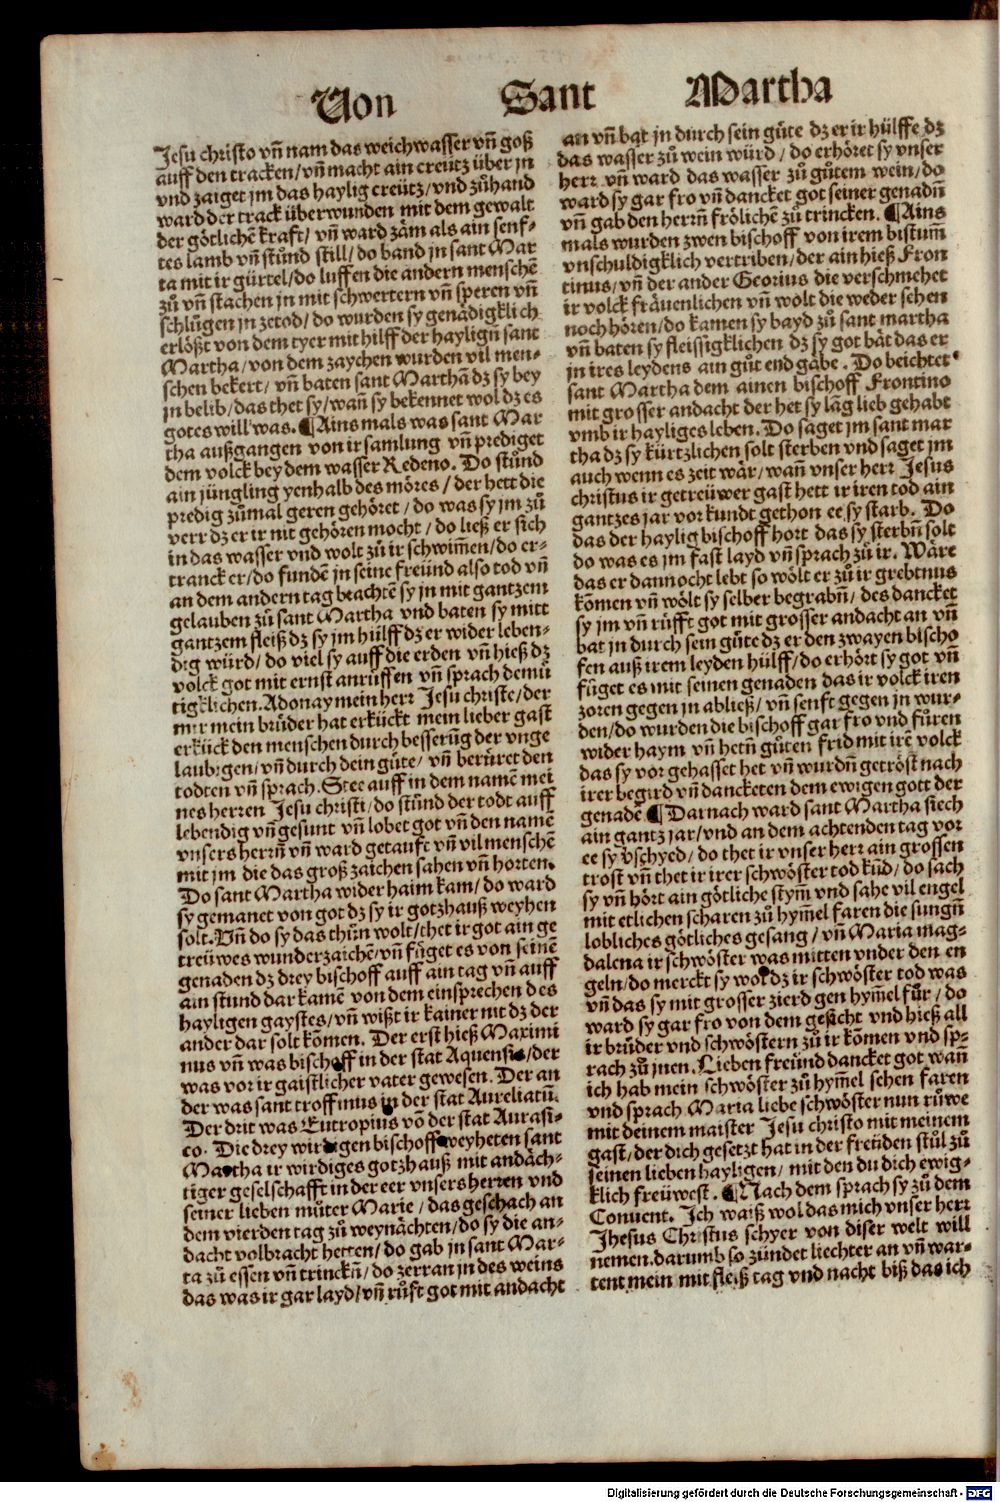 Von Sant Martha
Jesu christo vñ nam das weichwasser vñ goß
auff den tracken/ vñ macht ain creütz über jn
vnd zaiget jm das haylig creütz/ vnd zůhand
ward der track überwunden mit dem gewalt
der götlichē kraft/ vñ ward zām als ain senf⸗
tes lamb vñ stůnd still/ do band jn sant Mar
ta mit ir gürtel/ do luffen die andern menschē
zů vñ stachen jn mit schwertern vñ speren vñ
schlůgen jn zetod/ do wurden sy genādigklich
erlößt von dem tyer mit hilff der hayligñ sant
Martha/ von dem zaychen wurden vil men⸗
schen bekert/ vñ baten sant Marthā dz sy bey
jn belib/ das thet sy/ wañ sy bekennet wol dz es
gotes will was. ¶Ains mals was sant Mar
tha außgangen von ir samlung vñ prediget
dem volck bey dem wasser Redeno. Do stůnd
ain jüngling yenhalb des möres/ der hett die
predig zůmal geren gehöret/ do was sy jm zů
verr dz er ir nit gehören mocht/ do ließ er sich
in das wasser vnd wolt zů ir schwim̄en/ do er⸗
tranck er/ do fundē jn seine freünd also tod vñ
an dem andern tag beachtē sy jn mit gantzem
gelauben zů sant Martha vnd baten sy mitt
gantzem fleiß dz sy jm hülff dz er wider leben⸗
dig würd/ do viel sy auff die erden vñ hieß dz
volck got mit ernst anrüffen vñ sprach demů
tigklichen. Adonay mein herr Jesu christe/ der
mir mein brůder hat erkückt mein lieber gast
erkück den menschen durch besserūg der vnge
laubigen/ vñ durch dein güte/ vñ berüret den
todten vñ sprach. Stee auff in dem namē mei
nes herren Jesu christi/ do stůnd der todt auff
lebendig vñ gesunt vñ lobet got vñ den namē
vnsers herrñ vñ ward getauft vñ vil menschē
mit jm die das groß zaichen sahen vñ horten.
Do sant Martha wider haim kam/ do ward
sy gemanet von got dz sy ir gotzhauß weyhen
solt. Vñ do sy das thůn wolt/ thet ir got ain ge
treüwes wunderzaichē/ vñ füget es von seinē
genaden dz drey bischoff auff ain tag vñ auff
ain stund dar kamē von dem einsprechen des
hayligen gaystes/ vñ wißt ir kainer nit dz der
ander dar solt kōmen. Der erst hieß Maximi
nus vñ was bischoff in der stat Aquensis/ der
was vor ir gaistlicher vater gewesen. Der an
der was sant troffimus in der stat Aureliatū.
Der drit was Eutropius vō der stat Aurasi⸗
co. Die drey wirdigen bischoff weyheten sant
Martha ir wirdiges gotzhauß mit andāch⸗
tiger geselschafft in der eer vnsers herren vnd
seiner lieben můter Marie/ das geschach an
dem vierden tag zů weynächten/ do sy die an⸗
dacht volbracht hetten/ do gab jn sant Mar⸗
ta zů essen vñ trinckñ/ do zerran jn des weins
das was ir gar layd/ vñ růft got mit andacht
an vñ bat jn durch sein güte dz er ir hülffe dz
das wasser zů wein würd/ do erhöret sy vnser
herr vñ ward das wasser zů gůtem wein/ do
ward sy gar fro vñ dancket got seiner genadñ
vñ gab den herrñ frölichē zů trincken. ¶Ains
mals wurden zwen bischoff von irem bistum̄
vnschuldigklich vertriben/ der ain hieß Fron
tinus/ vñ der ander Georius die verschmehet
ir volck frāuenlichen vñ wolt die weder sehen
noch hören/ do kamen sy bayd zů sant martha
vñ baten sy fleissigklichen dz sy got bāt das er
jn ires leydens ain gůt end gābe. Do beichtet
sant Martha dem ainen bischoff Frontino
mit grosser andacht der het sy lāg lieb gehabt
vmb ir hayliges leben. Do saget jm sant mar
tha dz sy kürtzlichen solt sterben vnd saget jm
auch wenn es zeit wār/ wañ vnser herr Jesus
christus ir getreüwer gast hett ir iren tod ain
gantzes jar vor kundt gethon ee sy starb. Do
das der haylig bischoff hort das sy sterbñ solt
do was es jm fast layd vñ sprach zů ir. Wāre
das er dannocht lebt so wölt er zů ir grebtnus
kōmen vñ wölt sy selber begrabñ/ des dancket
sy jm vñ růfft got mit grosser andacht an vñ
bat jn durch sein güte dz er den zwayen bischo
fen auß irem leyden hülff/ do erhört sy got vñ
füget es mit seinen genaden das ir volck iren
zoren gegen jn abließ/ vñ senft gegen jn wur⸗
den/ do wurden die bischoff gar fro vnd fůren
wider haym vñ hetñ gůten frid mit irē volck
das sy vor gehasset het vñ wurdñ getröst nach
irer begird vñ dancketen dem ewigen gott der
genadē. ¶Darnach ward sant Martha siech
ain gantz jar/ vnd an dem achtenden tag vor
ee sy v̄schyed/ do thet ir vnser herr ain grossen
trost vñ thet ir irer schwöster tod kūd/ do sach
sy vñ hört ain götliche stym̄ vnd sahe vil engel
mit etlichen scharen zů hym̄el faren die sungñ
lobliches götliches gesang/ vñ Maria mag⸗
dalena ir schwöster was mitten vnder den en
geln/ do merckt sy wol dz ir schwöster tod was
vñ das sy mit grosser zierd gen hym̄el fůr/ do
ward sy gar fro von dem gesicht vnd hieß all
ir brůder vnd schwöstern zů ir kōmen vnd sp⸗
rach zů jnen. Lieben freünd dancket got wañ
ich hab mein schwöster zů hym̄el sehen faren
vnd sprach Maria liebe schwöster nun růwe
mit deinem maister Jesu christo mit meinem
gast/ der dich gesetzt hat in der freüden stůl zů
seinen lieben hayligen/ mit den du dich ewig⸗
klich freüwest. ¶Nach dem sprach sy zů dem
Conuent. Ich waiß wol das mich vnser herr
Jhesus Christus schyer von diser welt will
nemen. darumb so zündet liechter an vñ war⸗
tent mein mit fleiß tag vnd nacht biß das ich
Digitalisierung gefördert durch die Deutsche Forschungsgemeinschaft - DFG